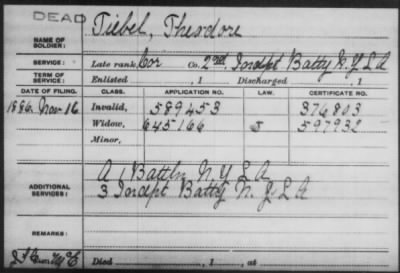 DEAD
NAME OF SOLDIER: Tiebel, Theodore
SERVICE: Late rank, Cor Co. 2nd, Indpt Batty N.Y.L.A
TERM OF SERVICE: Enlisted , 1 Discharged , 1
DATE OF FILING. CLASS. APPLICATION NO. LAW. CERTIFICATE NO.
1886 Nov 16 Invalid, 589453 376803
Widow, 645166 J 597932
Minor,
ADDITIONAL SERVICES: A 1 Battln N.Y.L.A
3 Indpt Batty N.Y.L.A
REMARKS:
Died , 1 , at